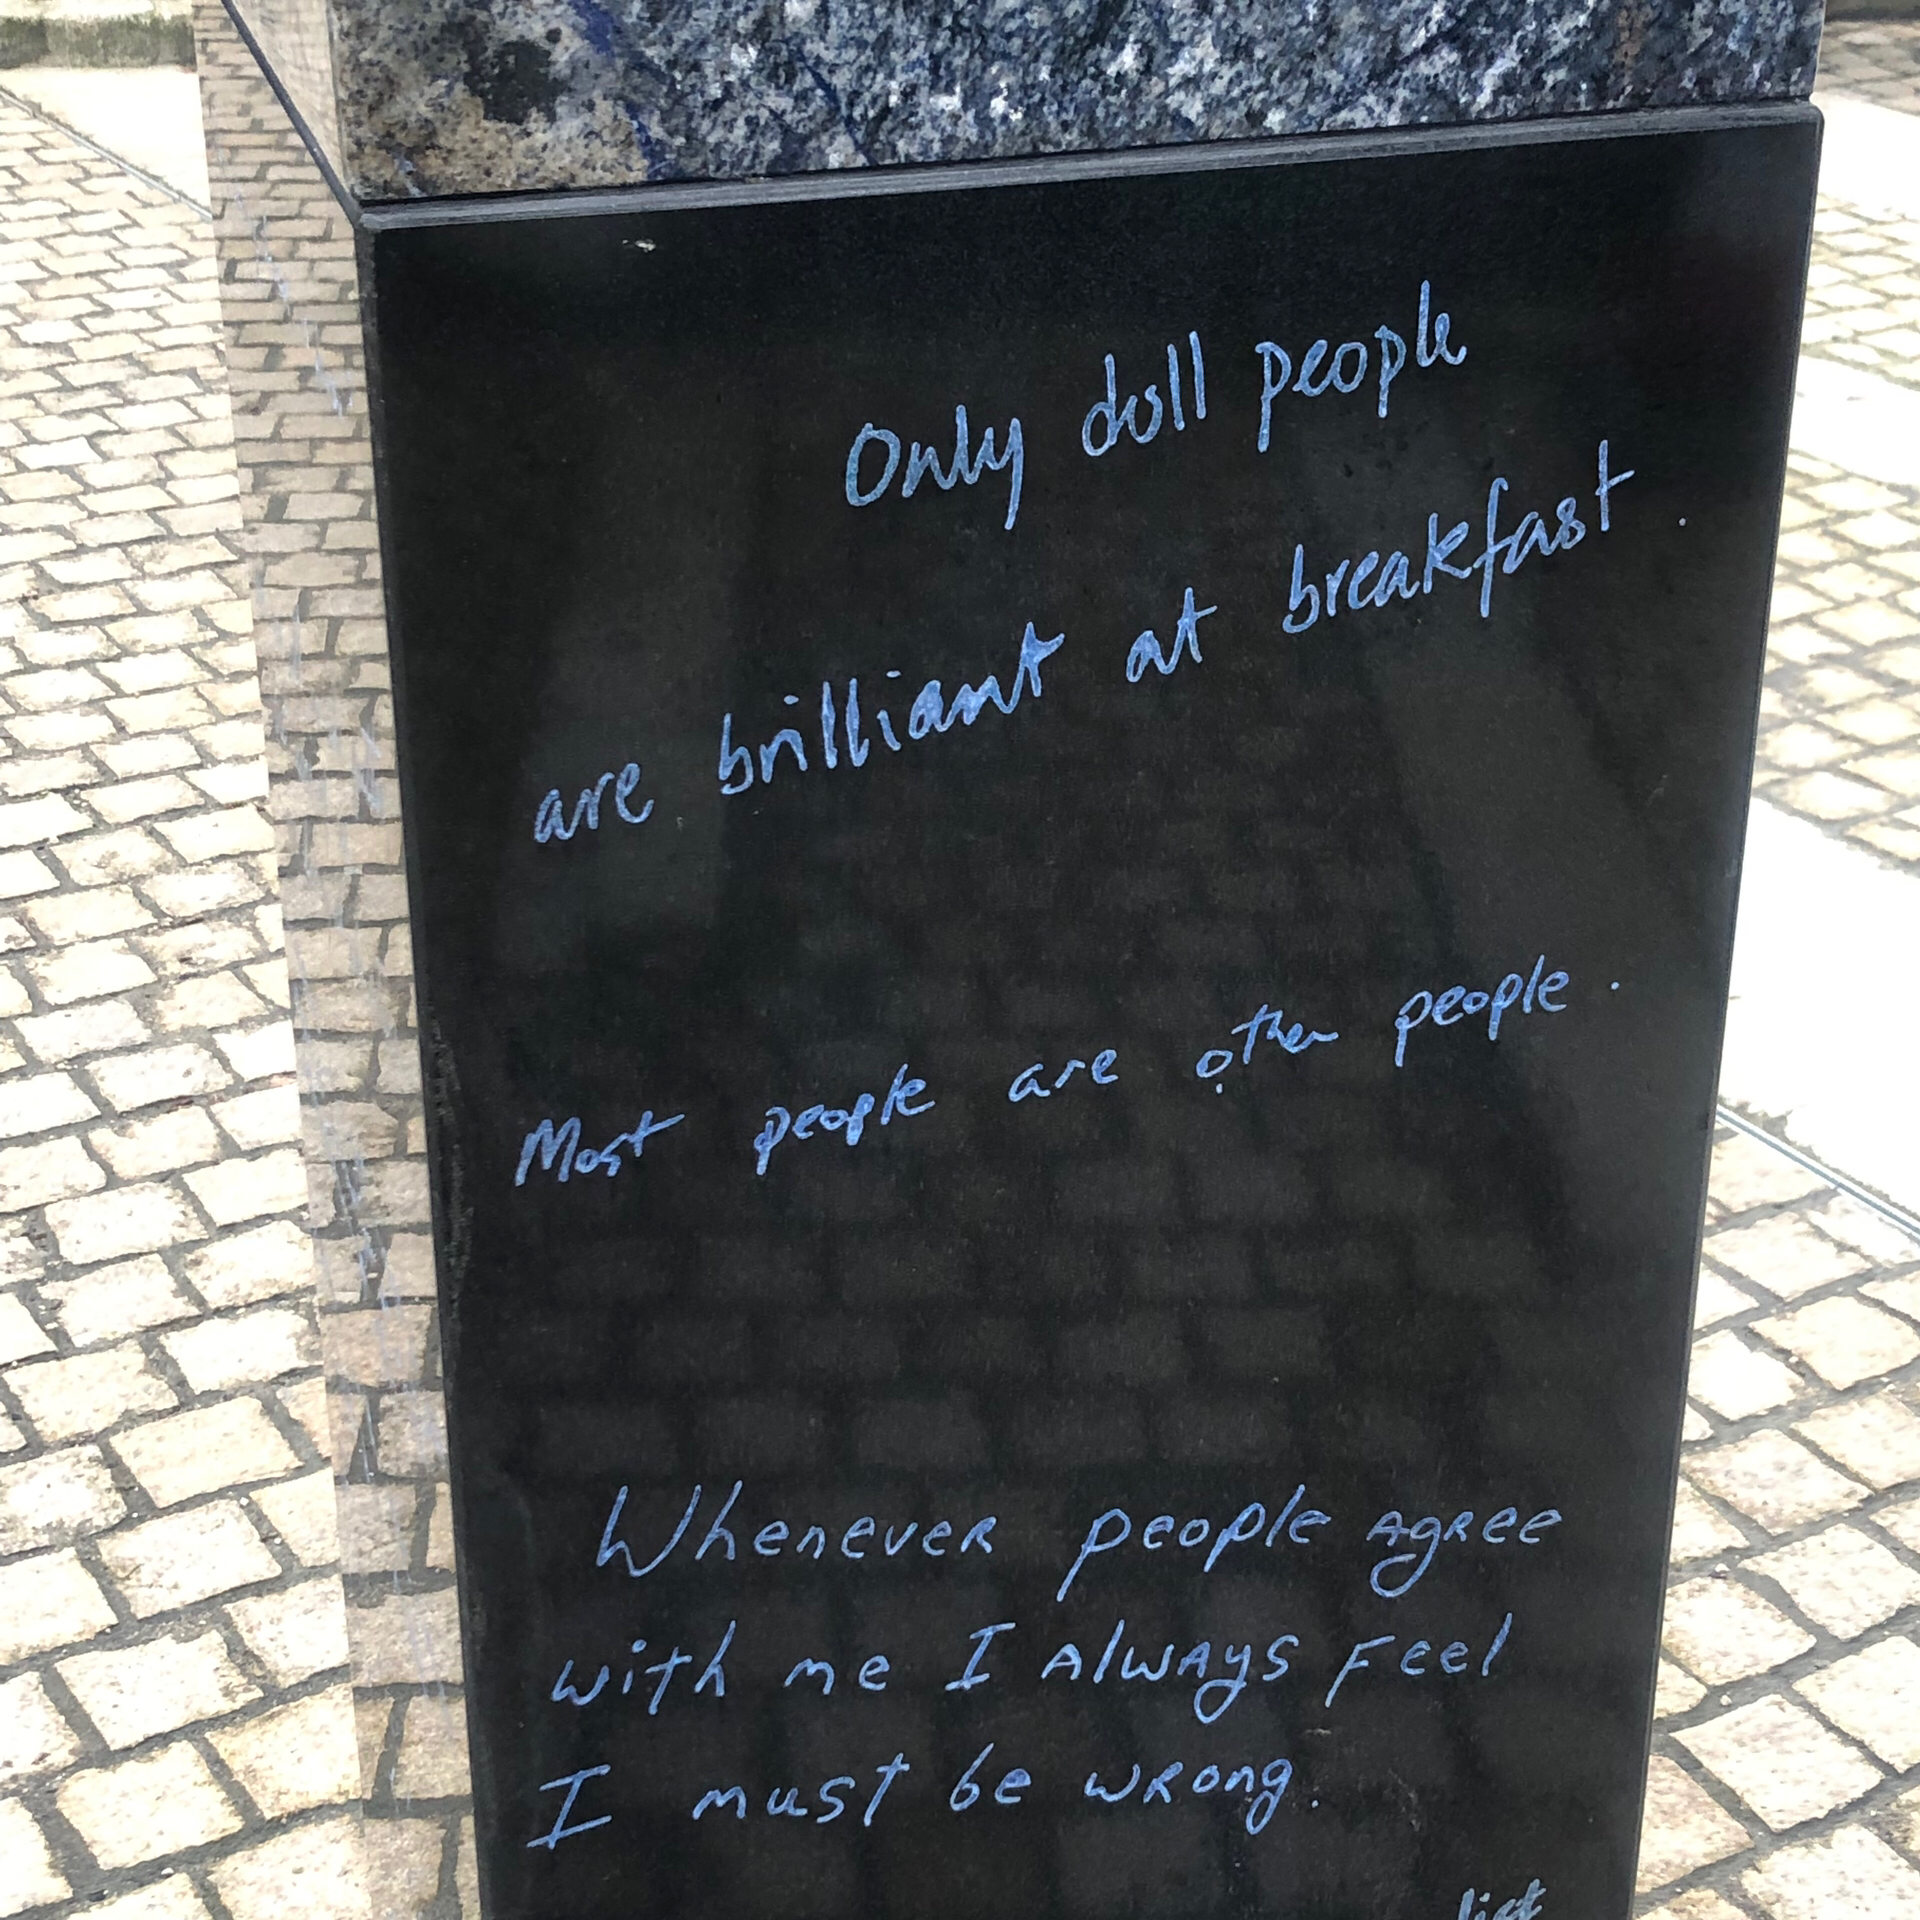 Only dull people
are brilliant at breakfast.
Most people are other people.
Whenever people agree
with me I always feel
I must be wrong.